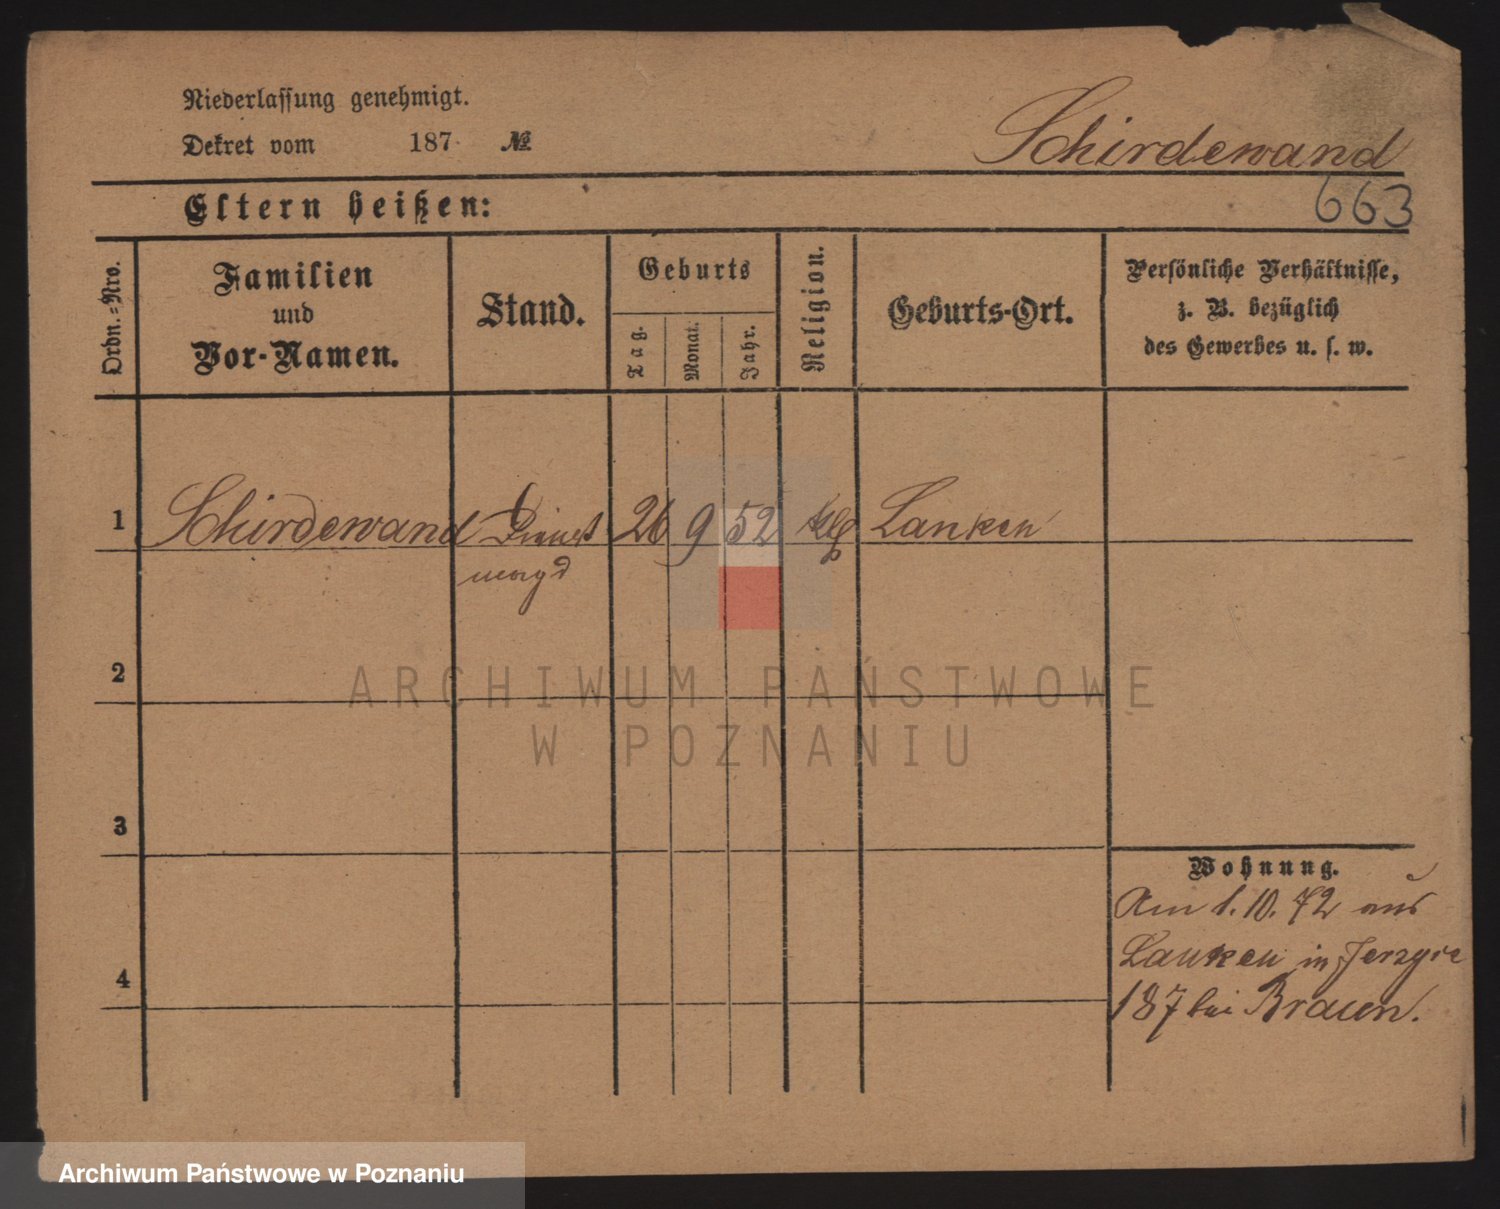 Niederlassung genehmigt.
Dekret vom 187 №
Schirdewand
663
Eltern heißen:
Ordn.-Nro.
Familien
und
Vor-Namen.
Stand.
Geburts
Tag.
Monat.
Jahr.
Religion.
Geburts-Ort.
Persönliche Verhältnisse,
z. B. bezüglich
des Gewerbes u. s. w.
1 Schirdewand Dienst 26 9 52 Lanken
magd
2
3
4
Wohnung.
Am 1. 10. 72 aus
Lanken in Jerzyce
187 bei Braun.
ARCHIWUM PAŃSTWOWE
W POZNANIU
Archiwum Państwowe w Poznaniu